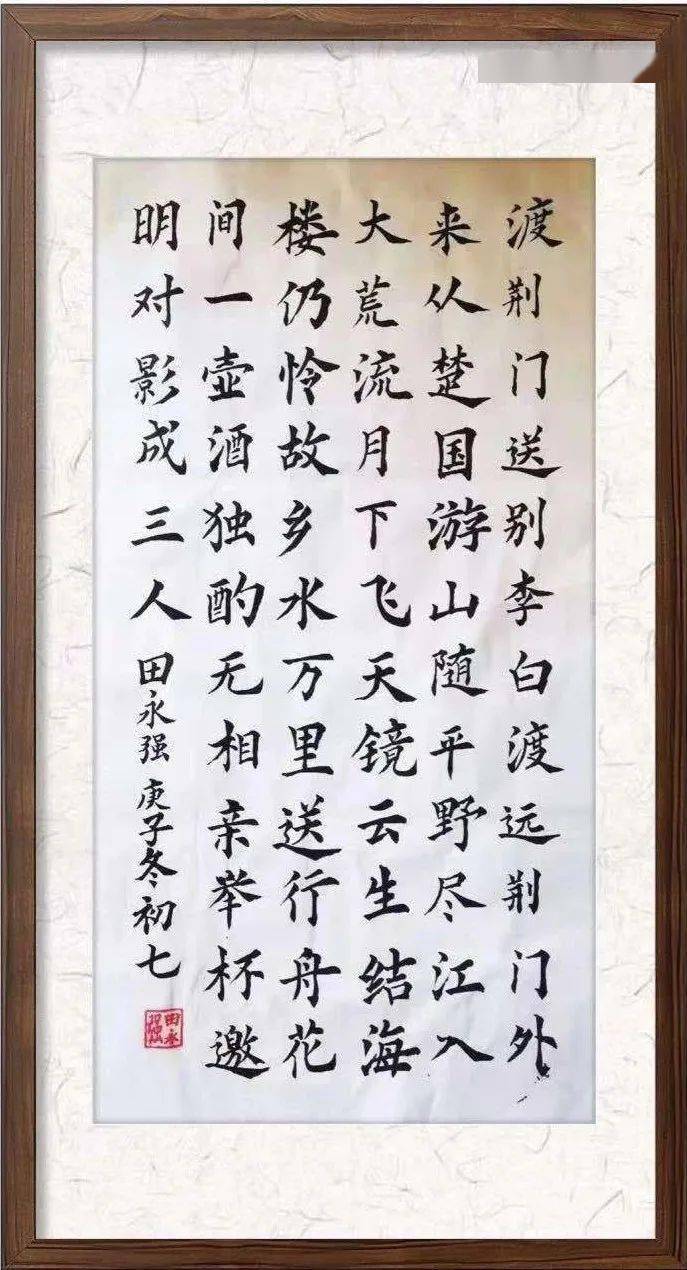 渡荆门送别李白渡远荆门外
来从楚国游山随平野尽江入
大荒流月下飞天镜云生结海
楼仍怜故乡水万里送行舟花
间一壶酒独酌无相亲举杯邀
明对影成三人田永强庚子冬初七
田永